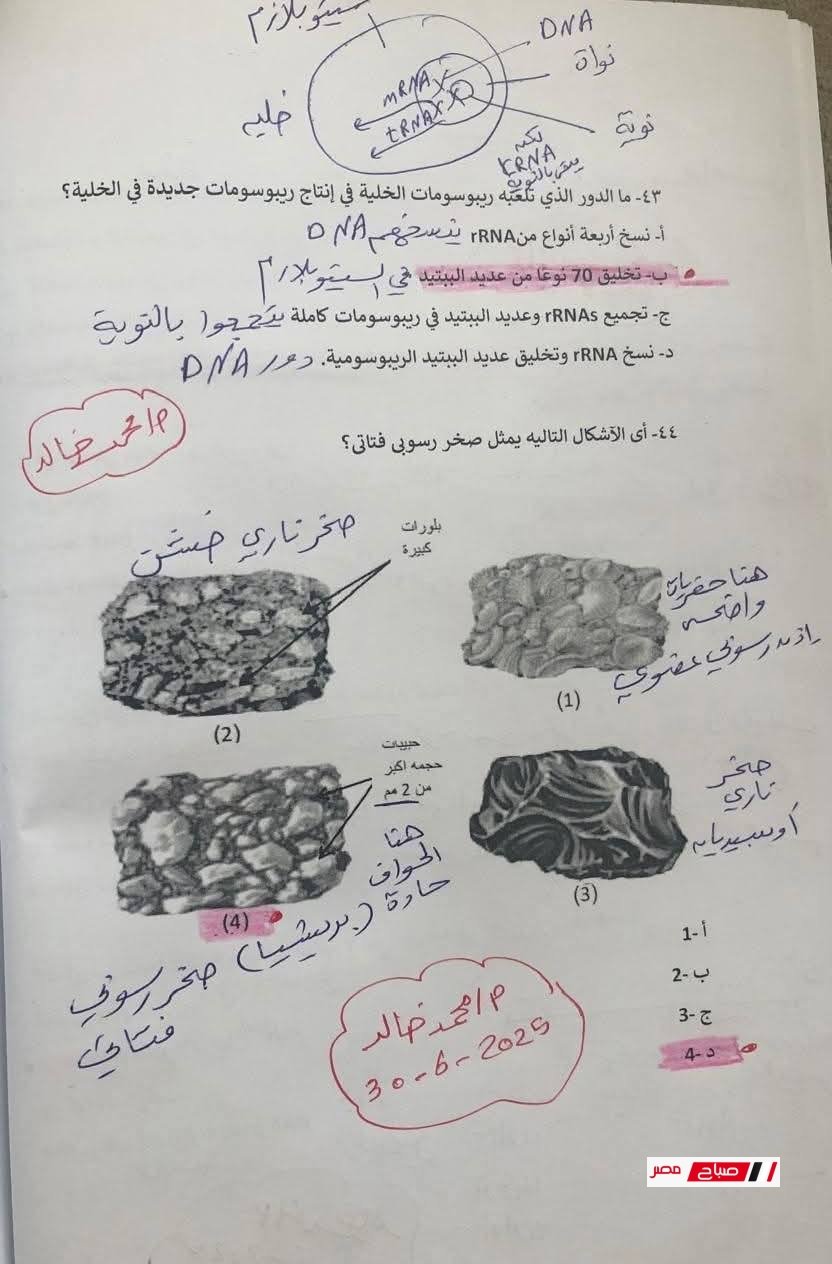 سيتوبلازم
DNA
نواة
mRNA
tRNA
خليه
نوية
لكن
rRNA
يبقى بالنوية
٤٣- ما الدور الذي تلعبه ريبوسومات الخلية في إنتاج ريبوسومات جديدة في الخلية؟
أ- نسخ أربعة أنواع من rRNA ينسخهم DNA
ب- تخليق 70 نوعًا من عديد الببتيد في السيتوبلازم
ج- تجميع rRNAs وعديد الببتيد في ريبوسومات كاملة يتجمعوا بالنوية
د- نسخ rRNA وتخليق عديد الببتيد الريبوسومية. دور DNA
م/محمد خالد
٤٤- أى الآشكال التاليه يمثل صخر رسوبى فتاتى؟
صخر ناري خشن
بلورات
كبيرة
هنا حفريات
واضحه
اذن رسوبي عضوي
(1)
(2)
حبيبات
حجمه اكبر
من 2 مم
هنا
الحواف
حادة
(بريشيا) صخر رسوبي
فتاتي
صخر
ناري
أوبسيديان
(3)
(4)
أ -1
ب -2
ج -3
د -4
م/محمد خالد
30-6-2025
صباح مصر